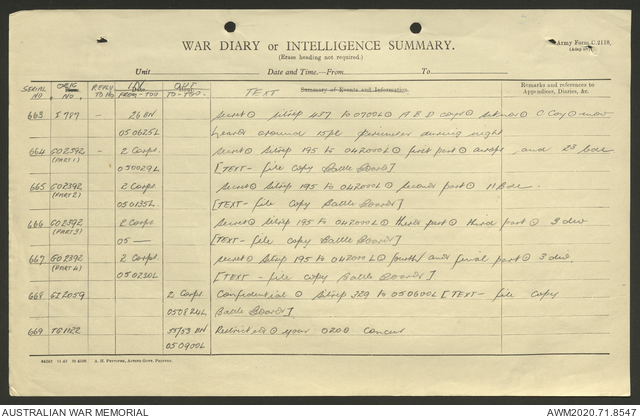 Army Form C.2118.
WAR DIARY or INTELLIGENCE SUMMARY.
(Erase heading not required.)
Unit Date and Time.—From To
SERIAL NO. ORIG NO. REPLY TO NO IN FROM - TOO OUT TO - TOO. TEXT Summary of Events and Information Remarks and references to Appendices, Diaries, &c.
663 I 787 - 26 BN Secret ⊙ Sitrep 457 to 0700L ⊙ A B D coys ⊙ ⊙ C Coy ⊙
050625L heard around 15 pl perimeter during night
664 GO2392 - 2 Corps. Secret ⊙ Sitrep 195 to 042000L ⊙ first part ⊙ and 23 bde
(PART 1) 050029L [TEXT - file copy Battle Board]
665 GO2392 2 Corps. Secret ⊙ Sitrep 195 to 042000L ⊙ Second part ⊙ 11 Bde.
(PART 2) 050135L [TEXT - file copy Battle Board]
666 GO2392 2 Corps Secret ⊙ Sitrep 195 to 042000L ⊙ third part ⊙ third part ⊙ 3 div
(PART 3) 05 — [TEXT - file copy Battle Board]
667 GO2392 2 Corps. Secret ⊙ Sitrep 195 to 042000L ⊙ fourth/ and final part ⊙ 3 div.
(PART 4) 050230L [TEXT - file copy Battle Board]
668 GI2059 2 Corps Confidential ⊙ Sitrep 329 to 050600L [TEXT - file copy
050824L Battle Board]
669 TG1122 55/53 BN Restricted ⊙ your 0200 concur
050900L
A. H. Pettifer, Acting Govt. Printer.
AUSTRALIAN WAR MEMORIAL
AWM2020.71.8547